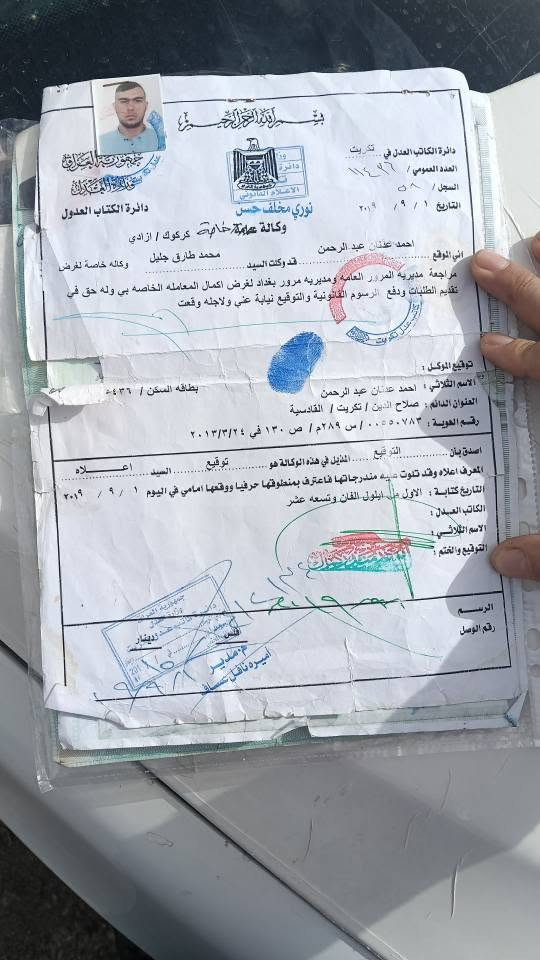 بسم الله الرحمن الرحيم
جمهورية العراق
وزارة العدل
دائرة الكتاب العدول
دائرة الكاتب العدل في تكريت
العدد العمومي /
السجل / ٥٨
التاريخ ١ / ٩ / ٢٠١٩
نوري مخلف حسن
وكالة خاصة
كركوك / ازادي
اني الموقع / احمد عدنان عبد الرحمن قد وكلت السيد محمد طارق جليل وكاله خاصة لغرض
مراجعة مديريه المرور العامه ومديريه مرور بغداد لغرض اكمال المعامله الخاصه بي وله حق في
تقديم الطلبات ودفع الرسوم القانونية والتوقيع نيابة عني ولاجله وقعت
كاتب عدل تكريت
توقيع الموكل :
الاسم الثلاثي : احمد عدنان عبد الرحمن
بطاقه السكن /
العنوان الدائم : صلاح الدين / تكريت / القادسية
رقم الهوية : ٠٠٥٥٠٧٨٣ / س ٢٨٩م / ص ١٣٠ في ٢٠١٣/٣/٢٤
اصدق بأن التوقيع المذيل في هذه الوكالة هو توقيع السيد اعلاه
المعرف اعلاه وقد تلوت عليه مندرجاتها فاعترف بمنطوقها حرفيا ووقعها امامي في اليوم ١ / ٩ / ٢٠١٩
التاريخ كتابة : الاول من ايلول الفان وتسعه عشر
الكاتب العدل :
الاسم الثلاثي :
التوقيع والختم :
الرسم
فلس دينار
رقم الوصل
م. مدير